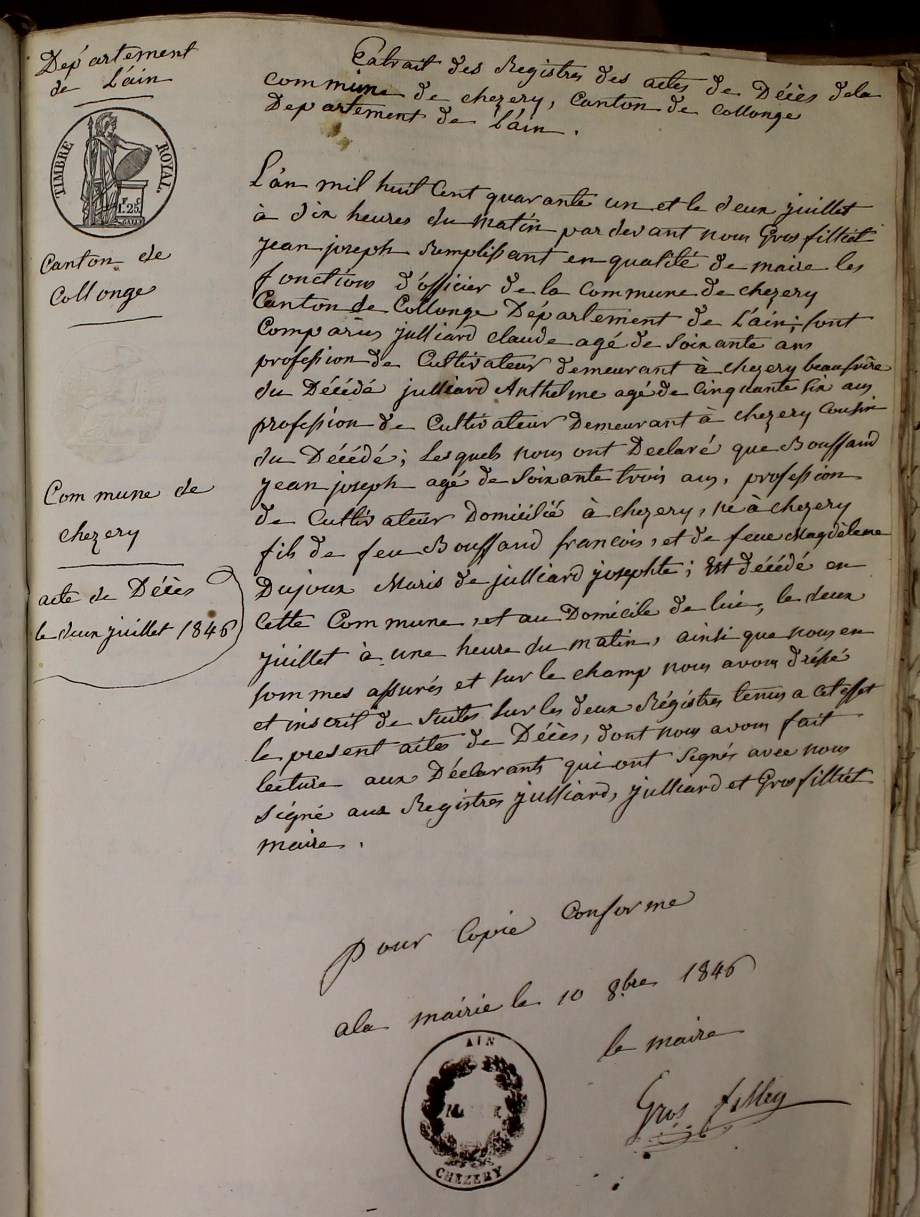 Département
de L'ain
TIMBRE ROYAL.
1.F 25.C
Canton de
Collonge
Commune de
chezery
acte de Décès
le deux juillet 1846
Extrait des Registres des actes de Décès dela
commune de chezery, Canton de Collonge
Departement de L'ain.
L'an mil huit Cent quarante un et le deux juillet
à dix heures du matin par devant nous Gros filliet
jean joseph Remplissant en qualité de maire les
fonctions d'officier de la Commune de chezery
Canton de Collonge Département de L'ain; sont
Comparus julliard claude agé de soixante ans
profession de Cultivateur demeurant à chezery beaufrère
du Décédé julliard Anthelme agé de Cinquante six ans
profession de Cultivateur Demeurant à chezery Cousin
du Décédé; Lesquels nous ont Declaré que Bouffand
jean joseph agé de Soixante trois ans, profession
de Cultivateur Domicilié à chezery, né à chezery
fils de feu Bouffand francois, et de feue Magdeleine
Dujoux Maris de julliard josephte; Est décédé en
Cette Commune, et au Domicile de lui, le deux
juillet à une heure du matin, ainsi que nous en
sommes assurés et sur le champ nous avons drésé
et inscrit de suites sur les deux Régistres tenus a cet effet
le present actes de Décès, dont nous avons fait
lecture aux Déclarants qui ont signés avec nous
signé aux Registres julliard, julliard et Gros filliet
maire.
pour Copie Conforme
ala mairie le 10 8bre 1846
le maire
Gros filley
AIN
MAIRIE
CHEZERY